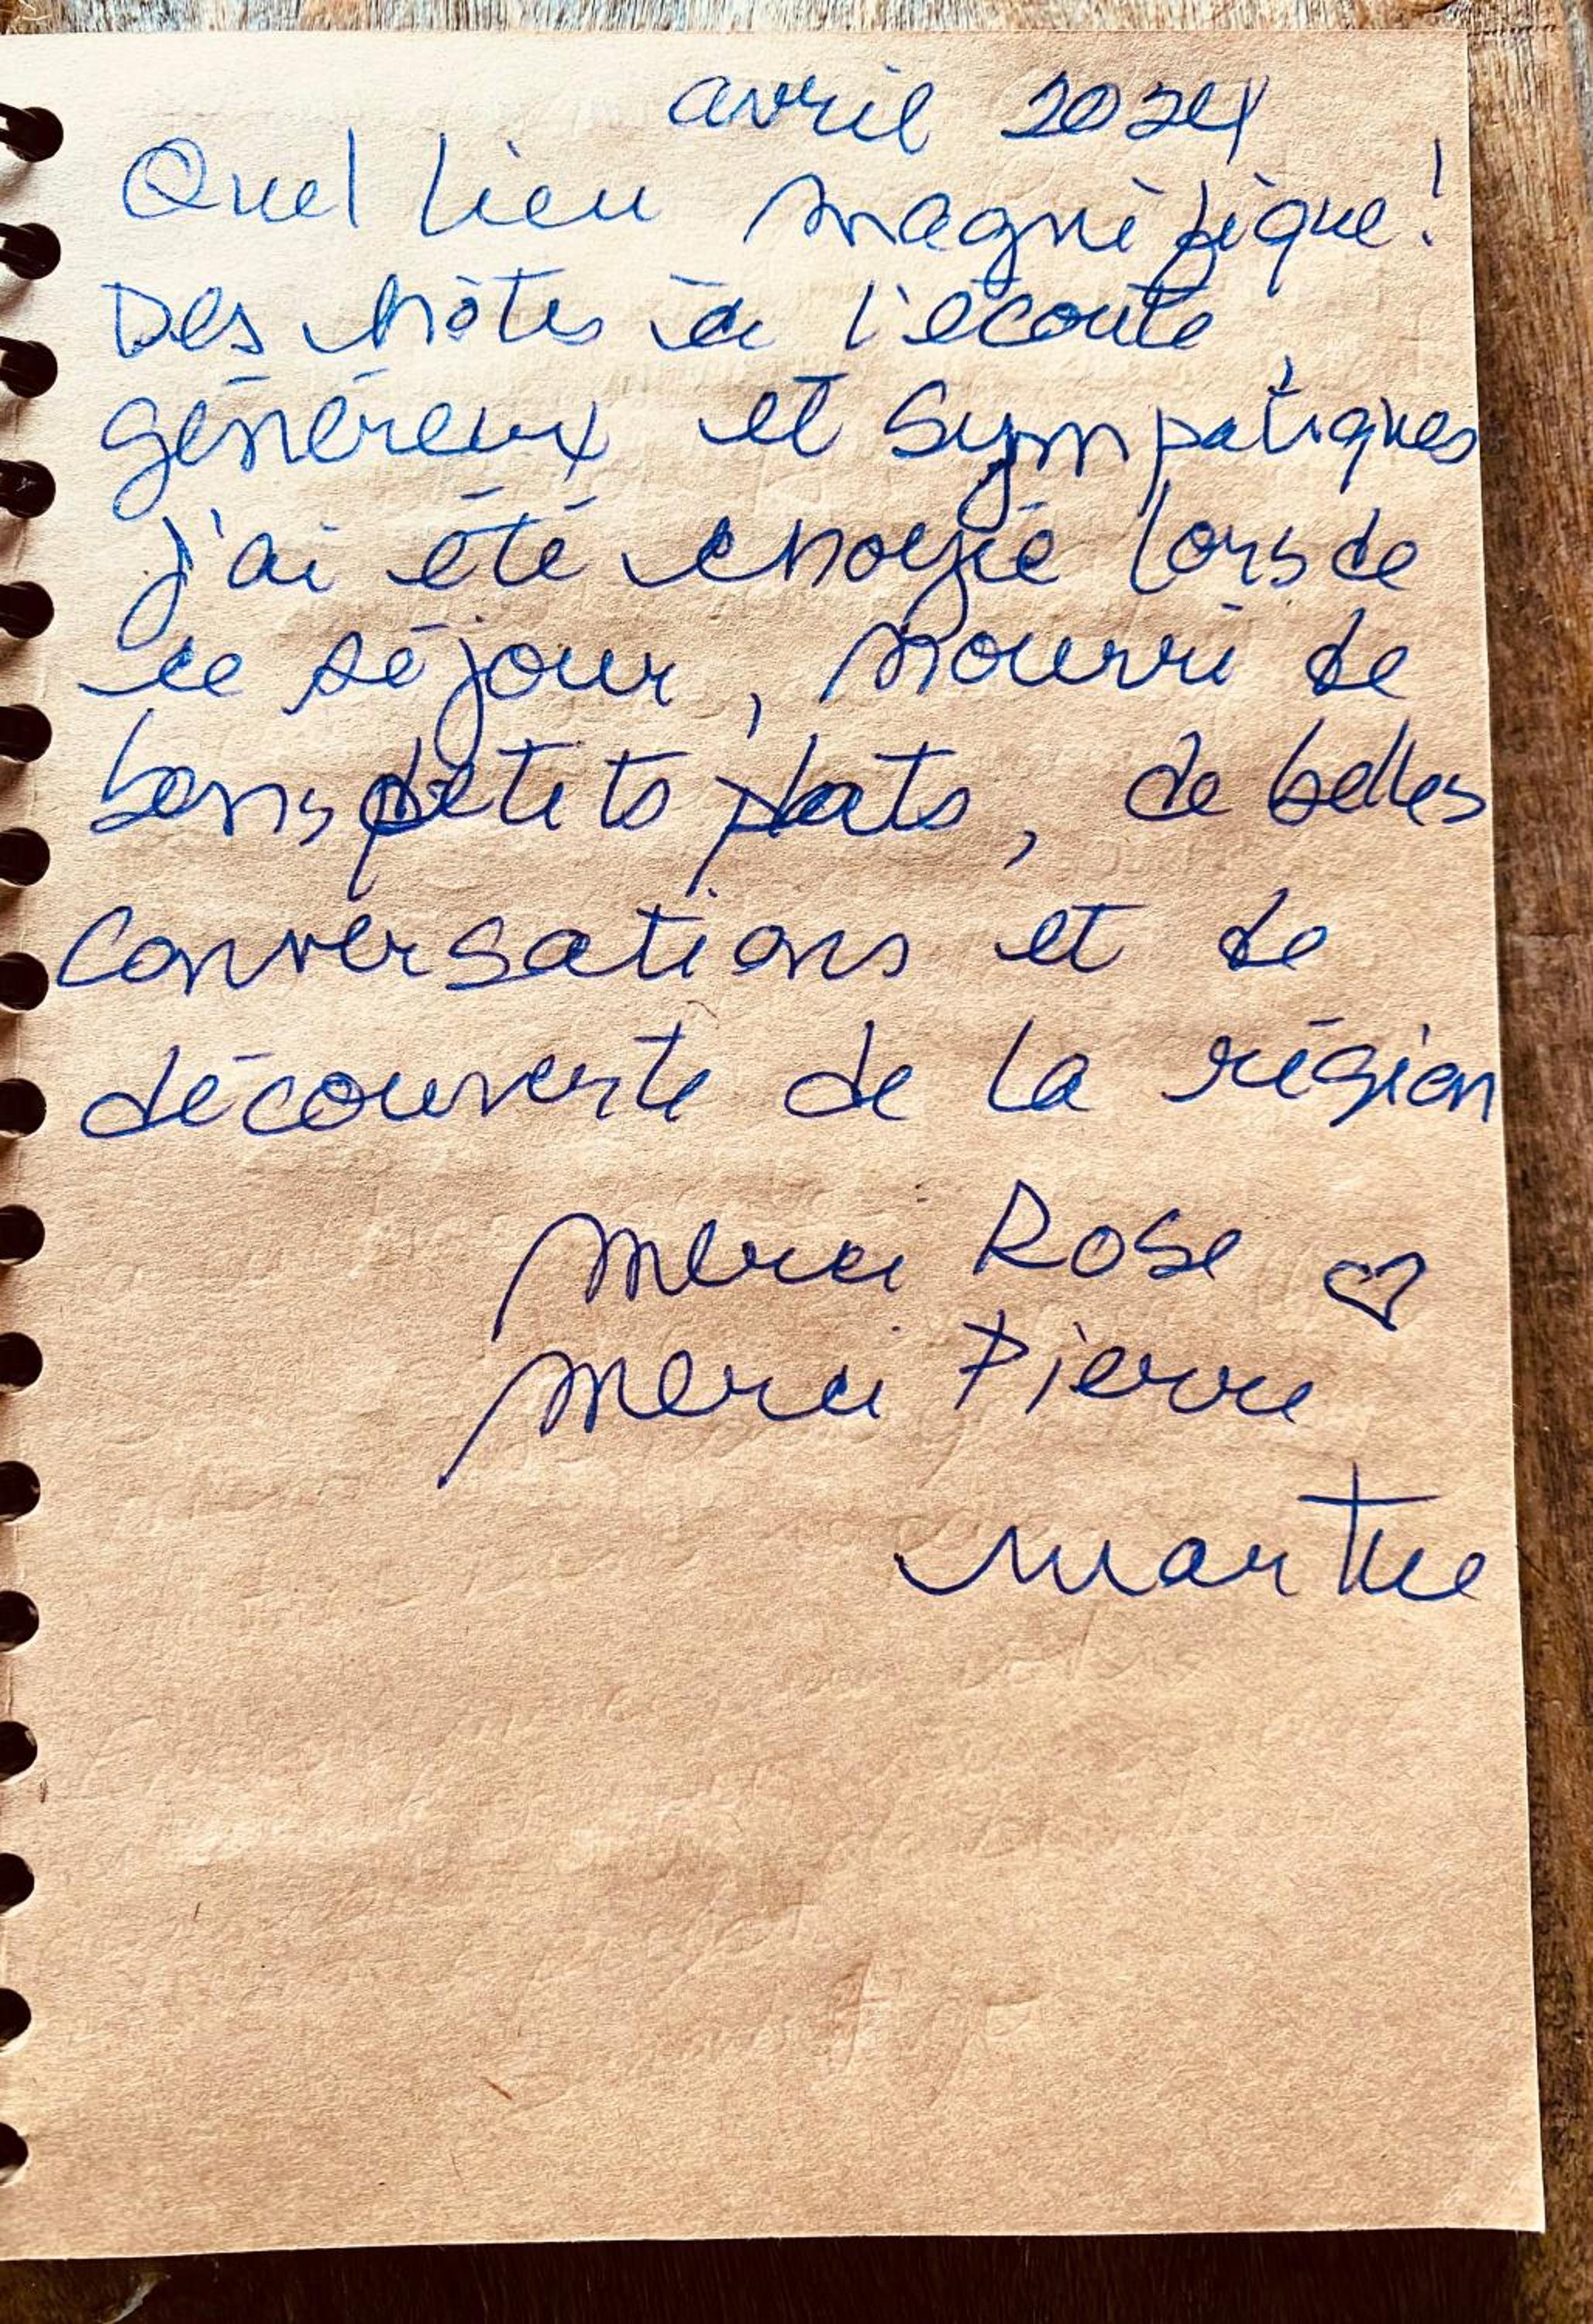 avril 2024
Quel lieu magnifique!
Des hôtes à l'écoute,
généreux et sympatiques
J'ai été choyée lors de
ce séjour, nourri de
bons petits plats, de belles
conversations et de
découverte de la région
Merci Rose ♡
Merci Pierre
Marthe